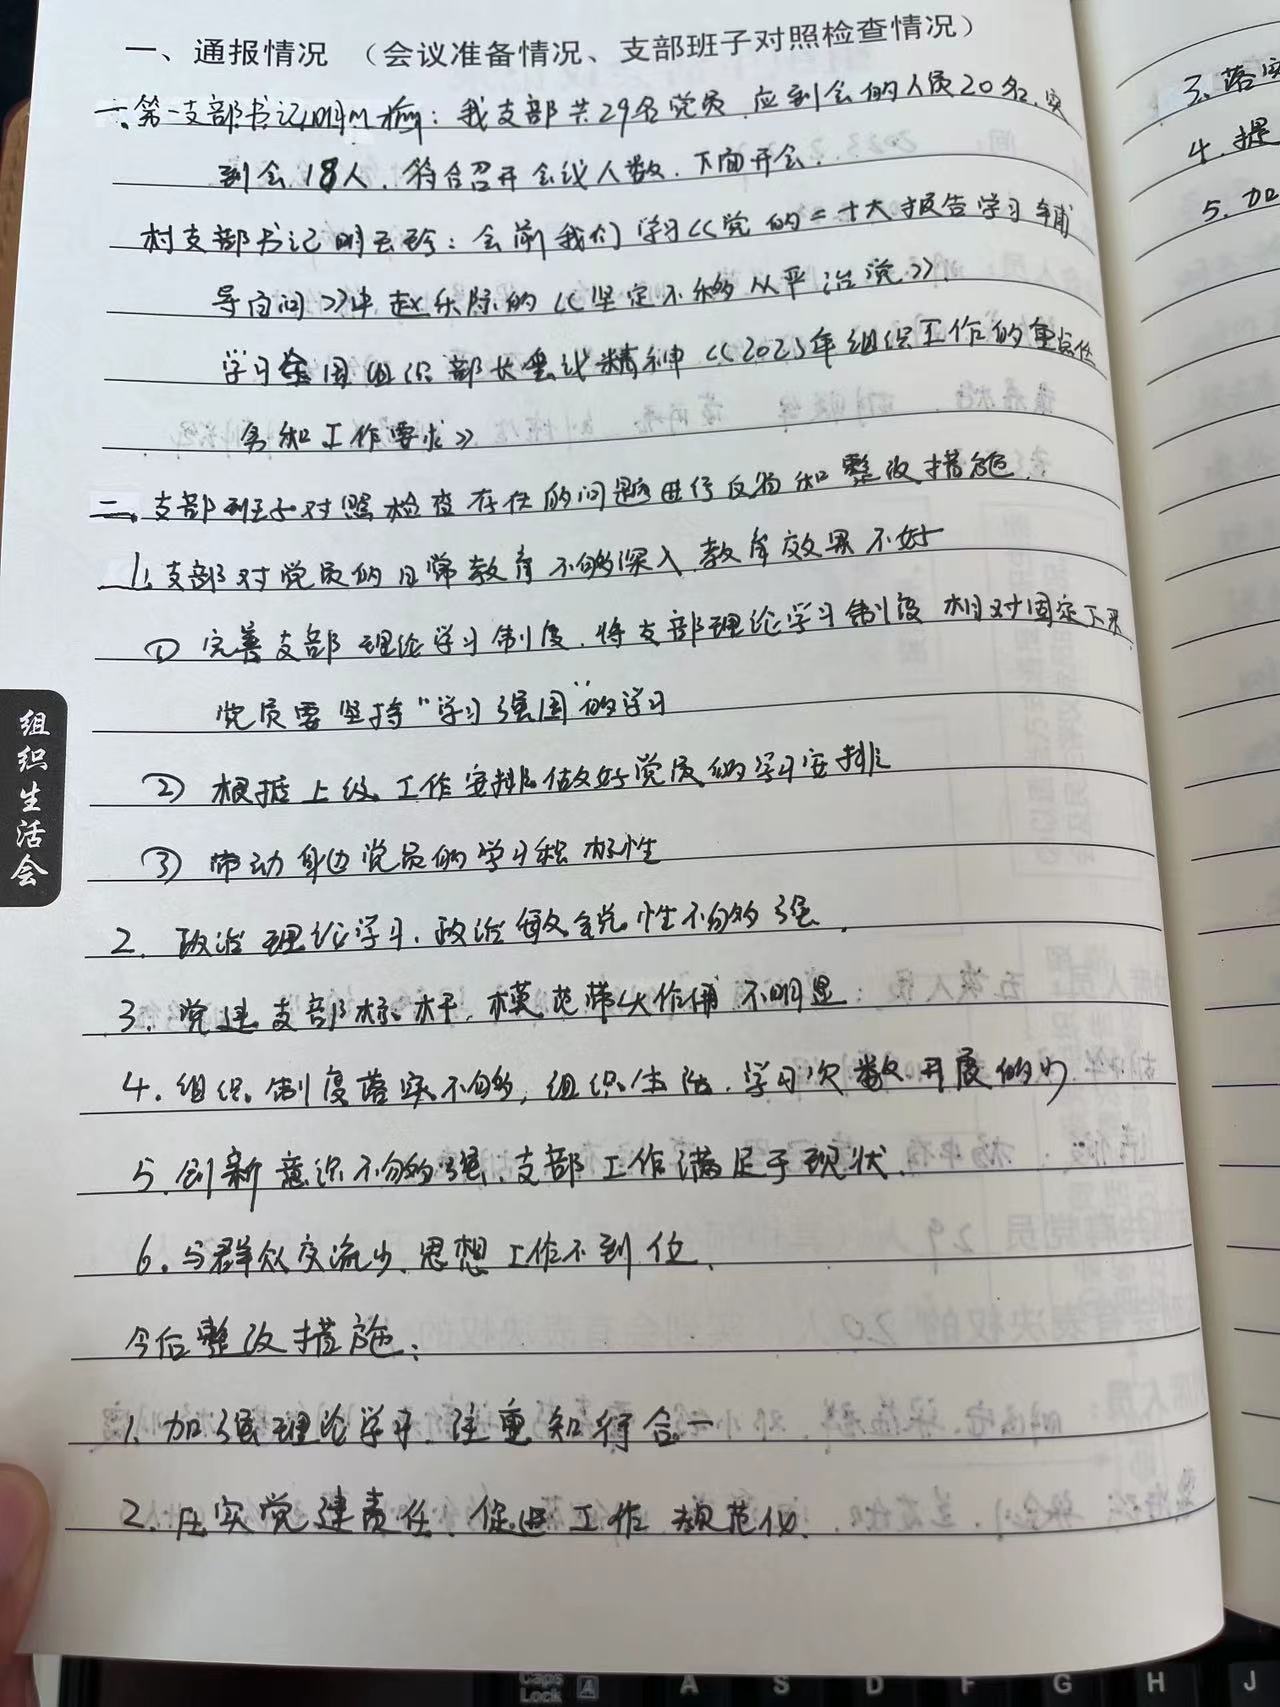 一、通报情况 （会议准备情况、支部班子对照检查情况）
一、第一支部书记明 ：我支部共29名党员，应到会的人员20名，实
到会18人，符合召开会议人数，下面开会。
村支部书记明云珍：会前我们学习《党的二十大报告学习辅
导百问》中赵乐际的《坚定不移从严治党》
学习全国组织部长会议精神《2023年组织工作的重点任
务和工作要求》
二、支部班子对照检查存在的问题进行反馈和整改措施。
1、支部对党员的日常教育不够深入，教育效果不好
① 完善支部理论学习制度，将支部理论学习制度相对固定下来
党员要坚持“学习强国”的学习
② 根据上级工作安排做好党员的学习安排
③ 带动身边党员的学习积极性
2、政治理论学习，政治敏锐性不够强。
3、党建支部标杆，模范带头作用不明显
4、组织制度落实不够，组织生活，学习次数开展的少
5、创新意识不够强，支部工作满足于现状。
6、与群众交流少，思想工作不到位。
今后整改措施：
1、加强理论学习，注重知行合一
2、压实党建责任，促进工作规范化。
组织生活会
3、落实
4、提
5、加
Caps Lock A
A S D F G H J